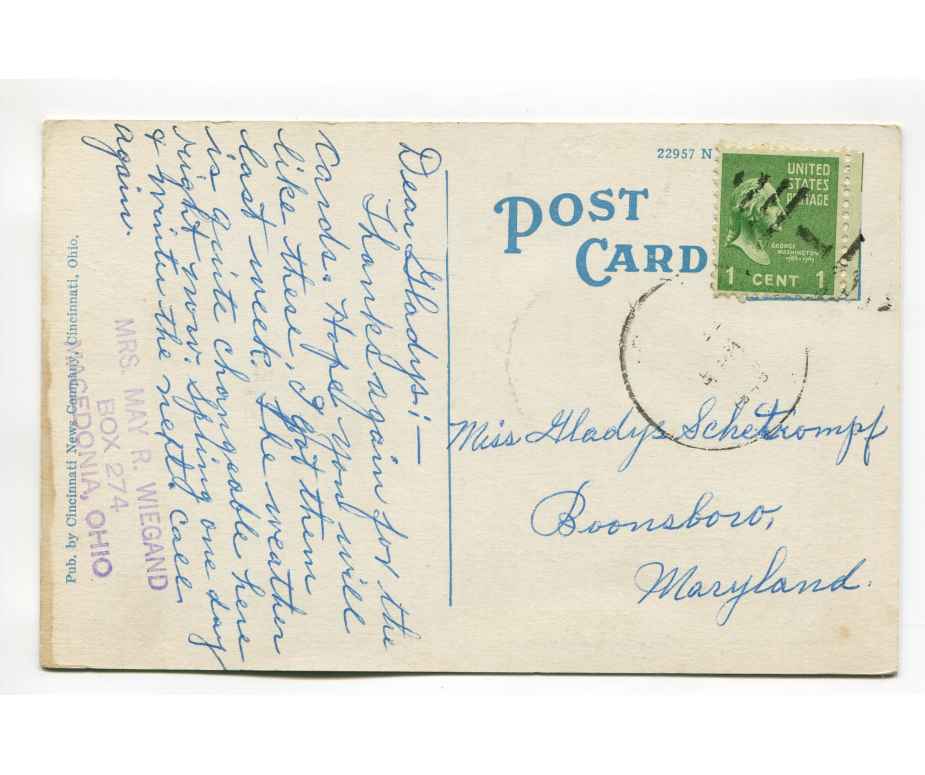 Dear Gladys:—
Thanks again for the
Cards. Hope you will
like these. I got them
last week. The weather
is quite changeable here
right now. Spring one day
& winter the next. Call
again.
MRS. MAY R. WIEGAND
BOX 274
MACEDONIA, OHIO.
Pub. by Cincinnati News Company, Cincinnati, Ohio.
22957 N
POST
CARD
UNITED
STATES
POSTAGE
GEORGE
WASHINGTON
1 CENT 1
Miss Gladys Schetrompf
Boonsboro,
Maryland.